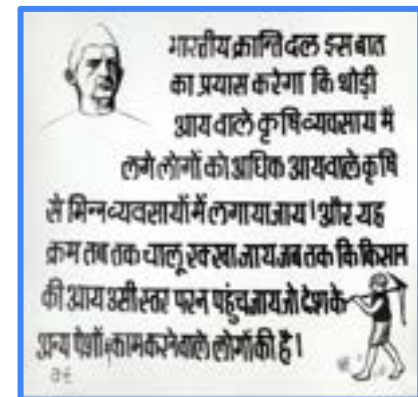 भारतीय क्रान्ति दल इस बात
का प्रयास करेगा कि थोड़ी
आय वाले कृषि व्यवसाय में
लगे लोगों को अधिक आय वाले कृषि
से भिन्न व्यवसायों में लगाया जाय। और यह
क्रम तब तक चालू रक्खा जाय जब तक कि किसान
की आय उसी स्तर पर न पहुंच जाय जो देश के
अन्य पेशों में काम करने वाले लोगों की है।